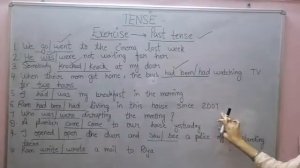 TENSE
Exercise → Past tense
1. We go/went to the cinema last week
2. He was/were not waiting for him.
3. Somebody knocked/knock at my door
4. When their mom got home, the boys had been/had watching TV
for two hours
5. I had/was my breakfast in the morning
6. Ram had been/had living in this house since 2001
7. Who was/were disrupting the meeting ?
8. A plumber came/come to our house yesterday
9. I opened/open the door and saw/see a police standing
there
10. Ram write/wrote a mail to Riya